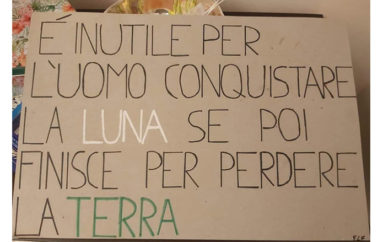 É INUTILE PER
L'UOMO CONQUISTARE
LA LUNA SE POI
FINISCE PER PERDERE
LA TERRA